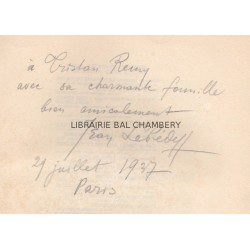 à Tristan Remy
avec sa charmante famille
bien amicalement
LIBRAIRIE BAL CHAMBERY
Jean Lébédeff
29 juillet 1937
Paris